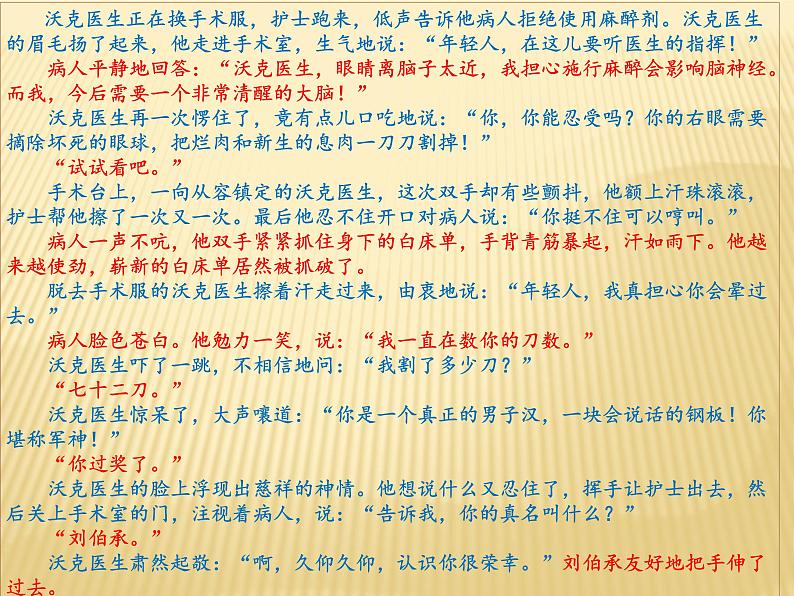 沃克医生正在换手术服，护士跑来，低声告诉他病人拒绝使用麻醉剂。沃克医生
的眉毛扬了起来，他走进手术室，生气地说：“年轻人，在这儿要听医生的指挥！”
病人平静地回答：“沃克医生，眼睛离脑子太近，我担心施行麻醉会影响脑神经。
而我，今后需要一个非常清醒的大脑！”
沃克医生再一次愣住了，竟有点儿口吃地说：“你，你能忍受吗？你的右眼需要
摘除坏死的眼球，把烂肉和新生的息肉一刀刀割掉！”
“试试看吧。”
手术台上，一向从容镇定的沃克医生，这次双手却有些颤抖，他额上汗珠滚滚，
护士帮他擦了一次又一次。最后他忍不住开口对病人说：“你挺不住可以哼叫。”
病人一声不吭，他双手紧紧抓住身下的白床单，手背青筋暴起，汗如雨下。他越
来越使劲，崭新的白床单居然被抓破了。
脱去手术服的沃克医生擦着汗走过来，由衷地说：“年轻人，我真担心你会晕过
去。”
病人脸色苍白。他勉力一笑，说：“我一直在数你的刀数。”
沃克医生吓了一跳，不相信地问：“我割了多少刀？”
“七十二刀。”
沃克医生惊呆了，大声嚷道：“你是一个真正的男子汉，一块会说话的钢板！你
堪称军神！”
“你过奖了。”
沃克医生的脸上浮现出慈祥的神情。他想说什么又忍住了，挥手让护士出去，然
后关上手术室的门，注视着病人，说：“告诉我，你的真名叫什么？”
“刘伯承。”
沃克医生肃然起敬：“啊，久仰久仰，认识你很荣幸。”刘伯承友好地把手伸了
过去。